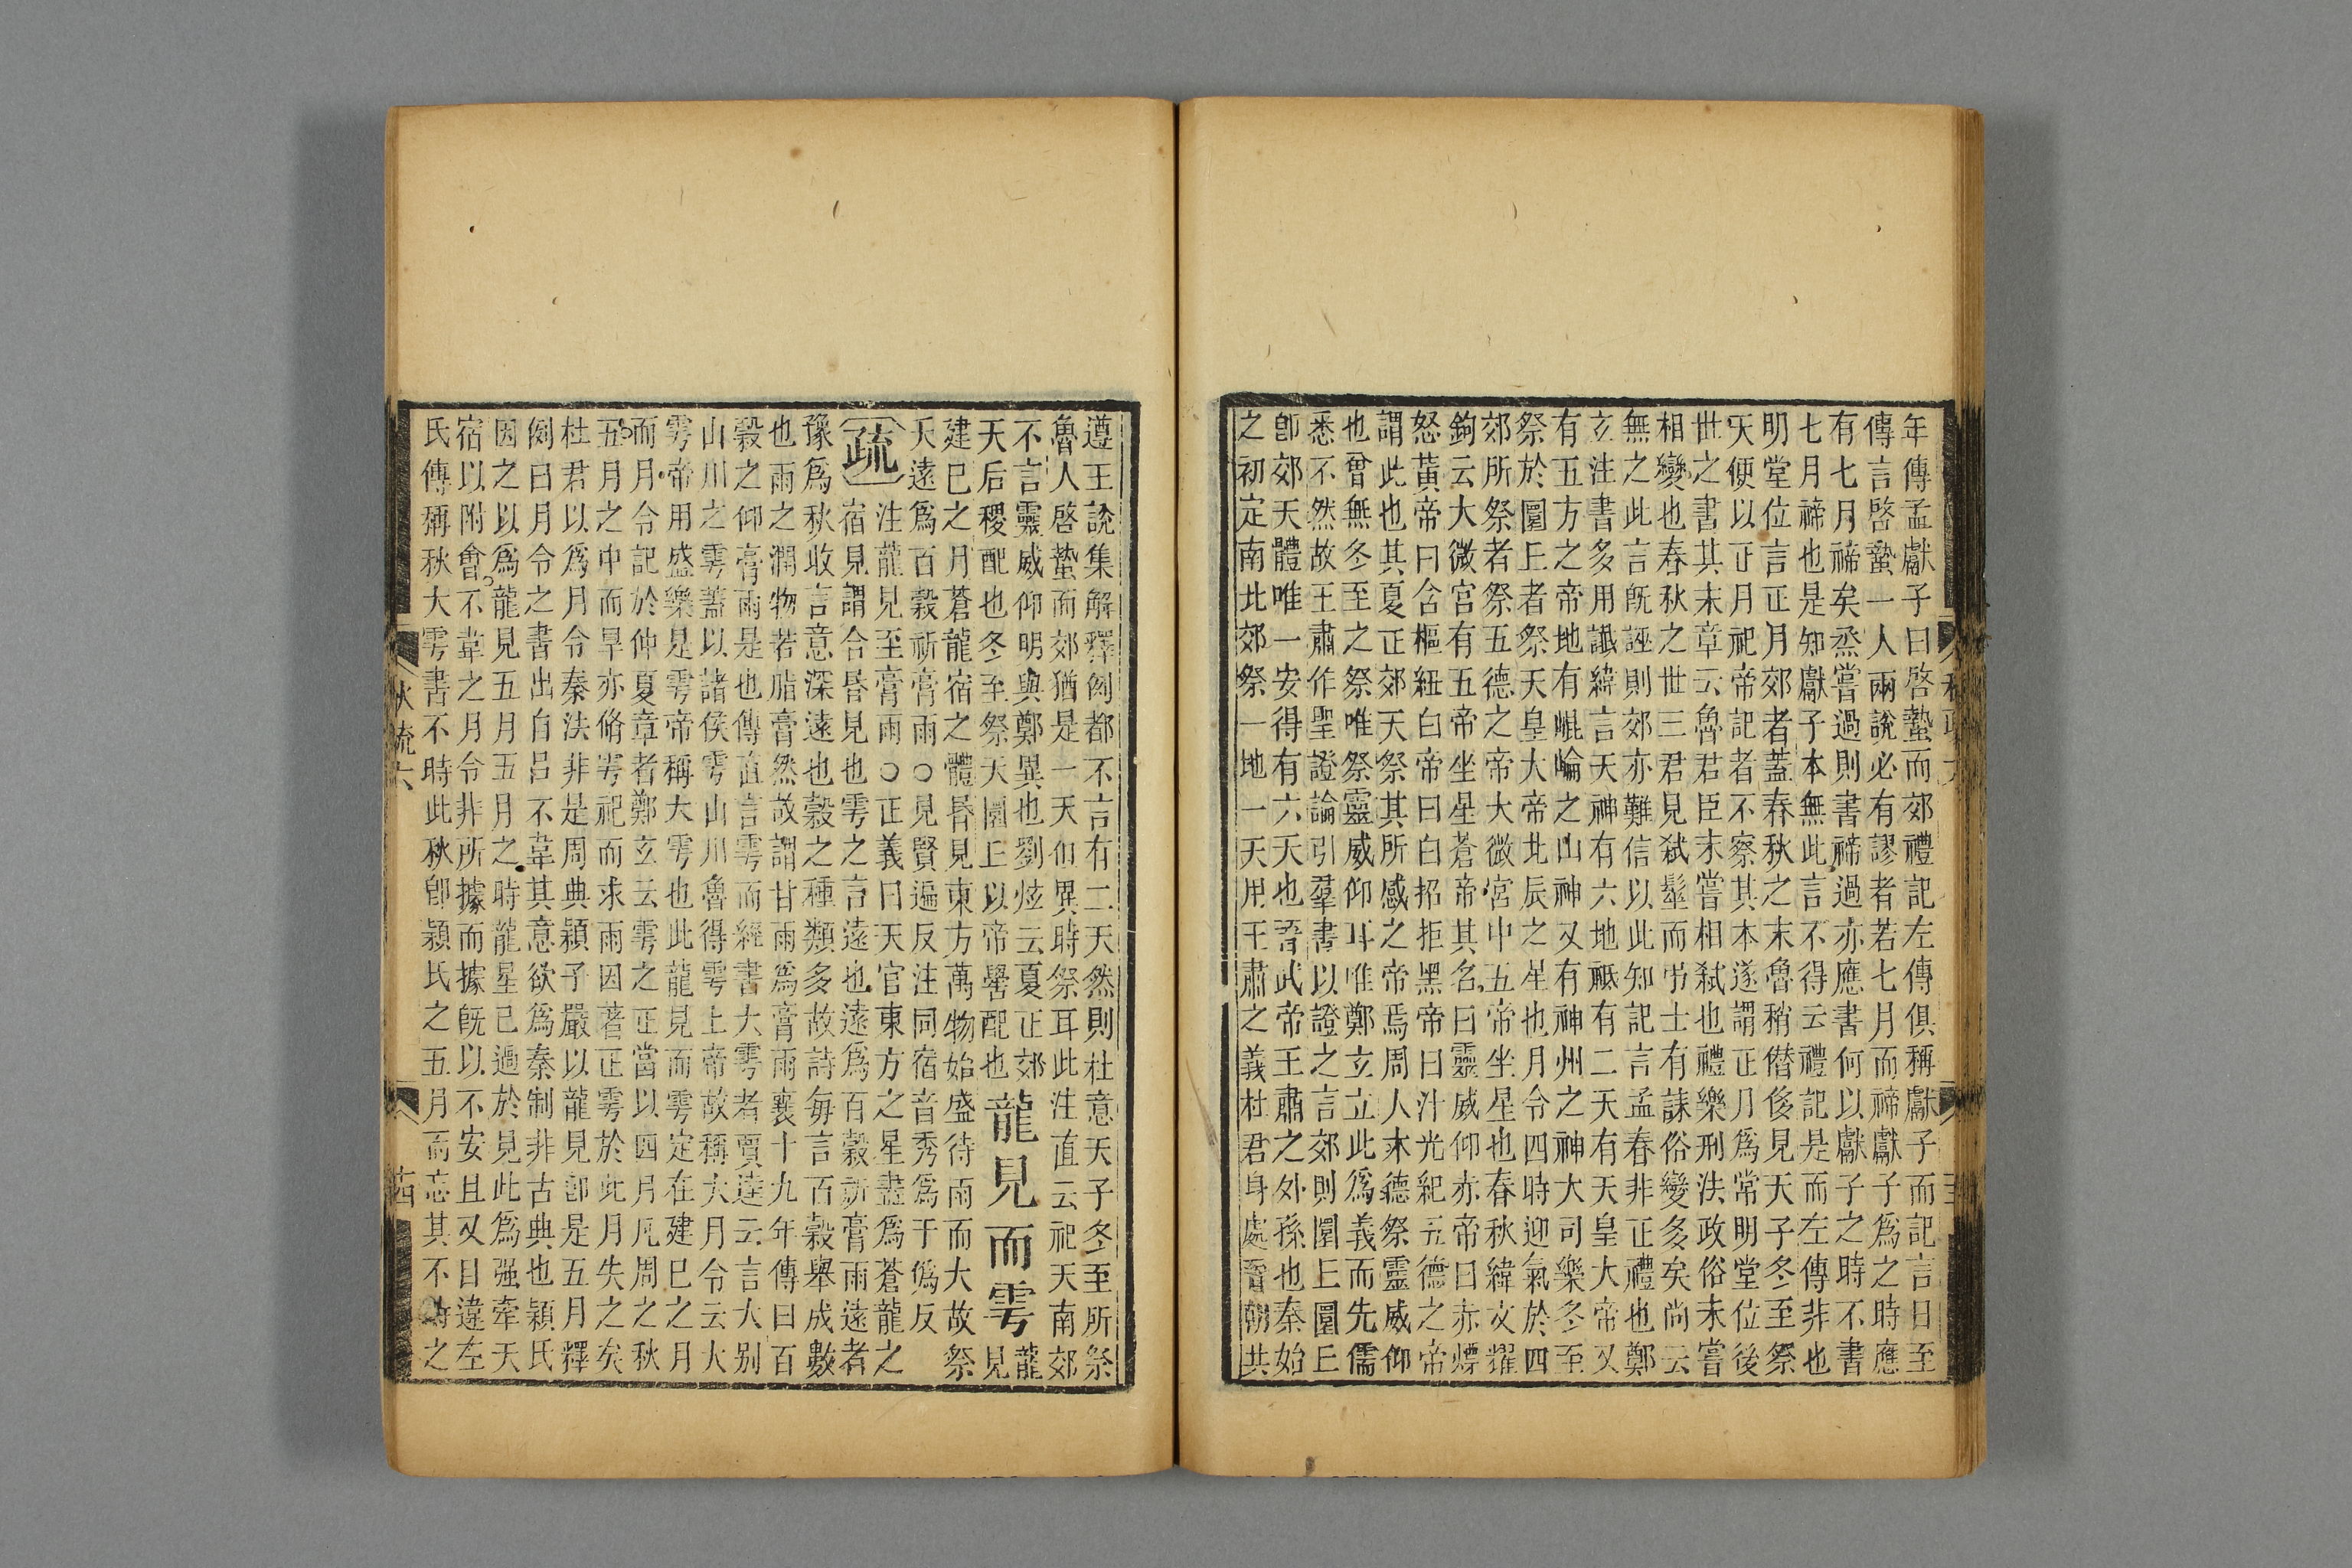 年傳孟獻子曰啓蟄而郊禮記左傳俱稱獻子而記言日至
傳言啓蟄一人兩說必有謬者若七月而禘獻子爲之時應
有七月禘矣烝嘗過則書禘過亦應書何以獻子之時不書
七月禘也是知獻子本無此言不得云禮記是而左傳非也
明堂位言正月郊者蓋春秋之末魯稍僭侈見天子冬至祭
天便以正月祀帝記者不察其本遂謂正月爲常明堂位後
世之書其末章云魯君臣未嘗相弒也禮樂刑法政俗未嘗
相變也春秋之世三君見弒髽而弔士有誄俗變多矣尚云
無之此言旣誣則郊亦難信以此知記言孟春非正禮也鄭
玄注書多用讖緯言天神有六地祗有二天有天皇大帝又
有五方之帝地有崐崘之山神又有神州之神大司樂冬至
祭於圜丘者祭天皇大帝北辰之星也月令四時迎氣於四
郊所祭者祭五德之帝大微宮中五帝坐星也春秋緯文耀
鉤云大微宮有五帝坐星蒼帝其名曰靈威仰赤帝曰赤熛
怒黃帝曰含樞紐白帝曰白招拒黑帝曰汁光紀五德之帝
謂此也其夏正郊天祭其所感之帝焉周人木德祭靈威仰
也曾無冬至之祭唯祭靈威仰耳唯鄭玄立此爲義而先儒
悉不然故王肅作聖證論引羣書以證之言郊則圜丘圜丘
卽郊天體唯一安得有六天也晉武帝王肅之外孫也秦始
之初定南北郊祭一地一天用王肅之義杜君身處晉朝共
遵王說集解釋例都不言有二天然則杜意天子冬至所祭
魯人啓蟄而郊猶是一天但異時祭耳此注直云祀天南郊
不言靈威仰明與鄭異也劉炫云夏正郊
天后稷配也冬至祭天圜丘以帝嚳配也
龍見而雩
龍
見
建巳之月蒼龍宿之體昬見東方萬物始盛待雨而大故祭
天遠爲百穀祈膏雨○見賢遍反注同宿音秀爲于僞反
疏
注龍見至膏雨○正義曰天官東方之星盡爲蒼龍之
宿見謂合昬見也雩之言遠也遠爲百穀祈膏雨遠者
豫爲秋收言意深遠也穀之種類多故詩每言百穀舉成數
也雨之潤物若脂膏然故謂甘雨爲膏雨襄十九年傳曰百
穀之仰膏雨是也傳直言雩而經書大雩者賈逵云言大别
山川之雩蓋以諸侯雩山川魯得雩上帝故稱大月令云大
雩帝用盛樂是雩帝稱大雩也此龍見而雩定在建巳之月
而月令記於仲夏章者鄭玄云雩之正當以四月凡周之秋
五月之中而旱亦脩雩祀而求雨因著正雩於此月失之矣
杜君以爲月令秦法非是周典潁子嚴以龍見卽是五月釋
例曰月令之書出自呂不韋其意欲爲秦制非古典也潁氏
因之以爲龍見五月五月之時龍星已過於見此爲强牽天
宿以附會不韋之月令非所據而據旣以不安且又自違左
氏傳稱秋大雩書不時此秋卽潁氏之五月而忘其不時之
秋疏六